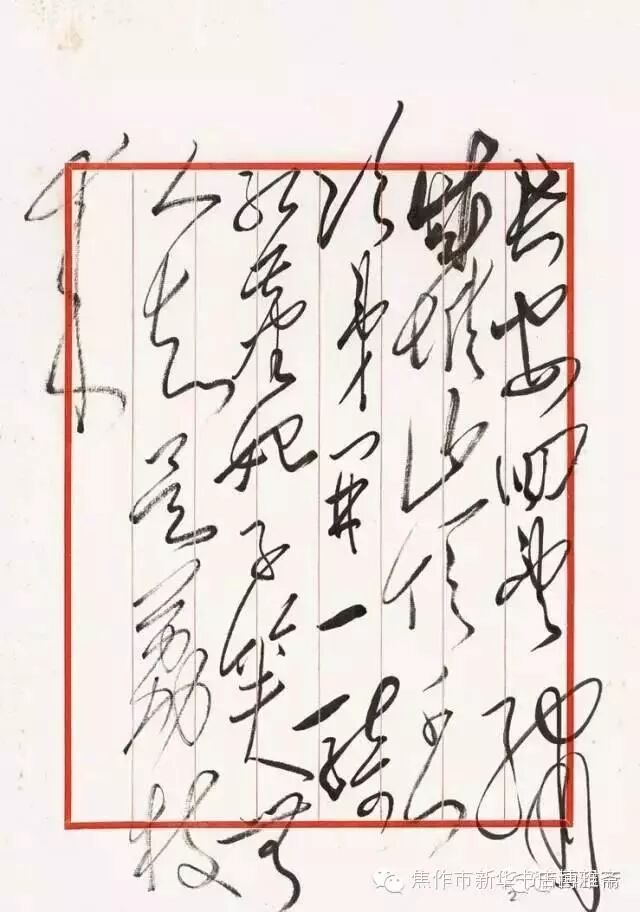 长安回望绣
成堆山顶千门
次第开一骑
红尘妃子笑无
人知是荔枝
来
焦作市新华书店博雅斋
2